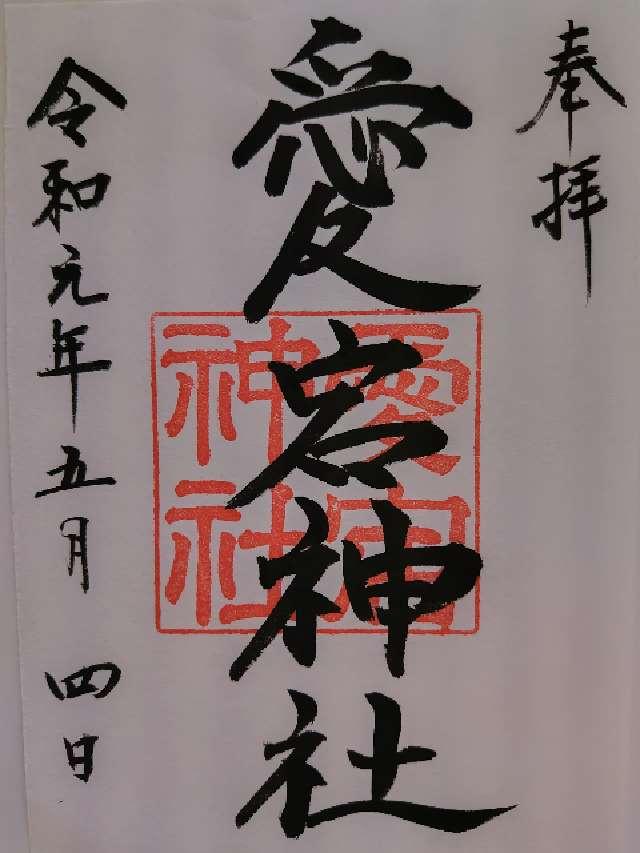 奉拝
愛宕神社
愛宕
神社
令和元年五月四日